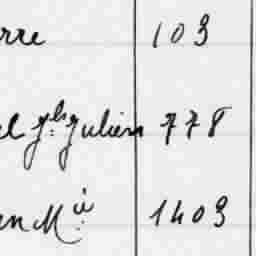 rre 103
el fils Julien 778
en Mie 1409